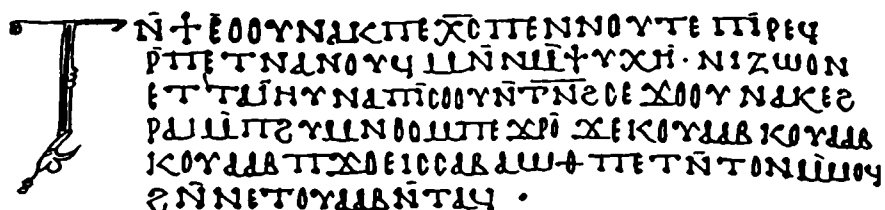 Ⲧⲛ̄ϯⲉ̄ⲟⲟⲩⲛⲁⲕⲡⲉⲭ̄ⲥ̄ⲡⲉⲛⲛⲟⲩⲧⲉ ⲡⲓ̄ⲣⲉϥ
ⲣ̄ⲡⲉⲧⲛⲁⲛⲟⲩϥ ⲙⲛ̄ⲛⲙ̄ⲯⲩⲭⲏ̄· ⲛⲓⲍⲱⲟⲛ
ⲉⲧⲧⲁⲓ̈ⲏⲩⲛⲁⲡⲓ̄ⲥⲟⲟⲩⲛ̄ⲧ̄ⲛ̄ϩ̄ⲥⲉϫⲟⲟⲩⲛⲁⲕⲉϩ
ⲣⲁⲓⲙ̄ⲡϩⲩⲙⲛⲟⲟⲙⲡⲉϫⲣⲟ̄ ϫⲉⲕⲟⲩⲁⲁⲃ ⲕⲟⲩⲁⲁⲃ
ⲕⲟⲩⲁⲁⲃ ⲡϫⲟⲉⲓⲥⲥⲁⲃⲁⲱⲑ ⲡⲉⲧⲛ̄ⲧⲟⲛⲙ̄ⲙⲟϥ
ϩⲛ̄ⲛⲉⲧⲟⲩⲁⲁⲃⲛ̄ⲧⲁϥ ·